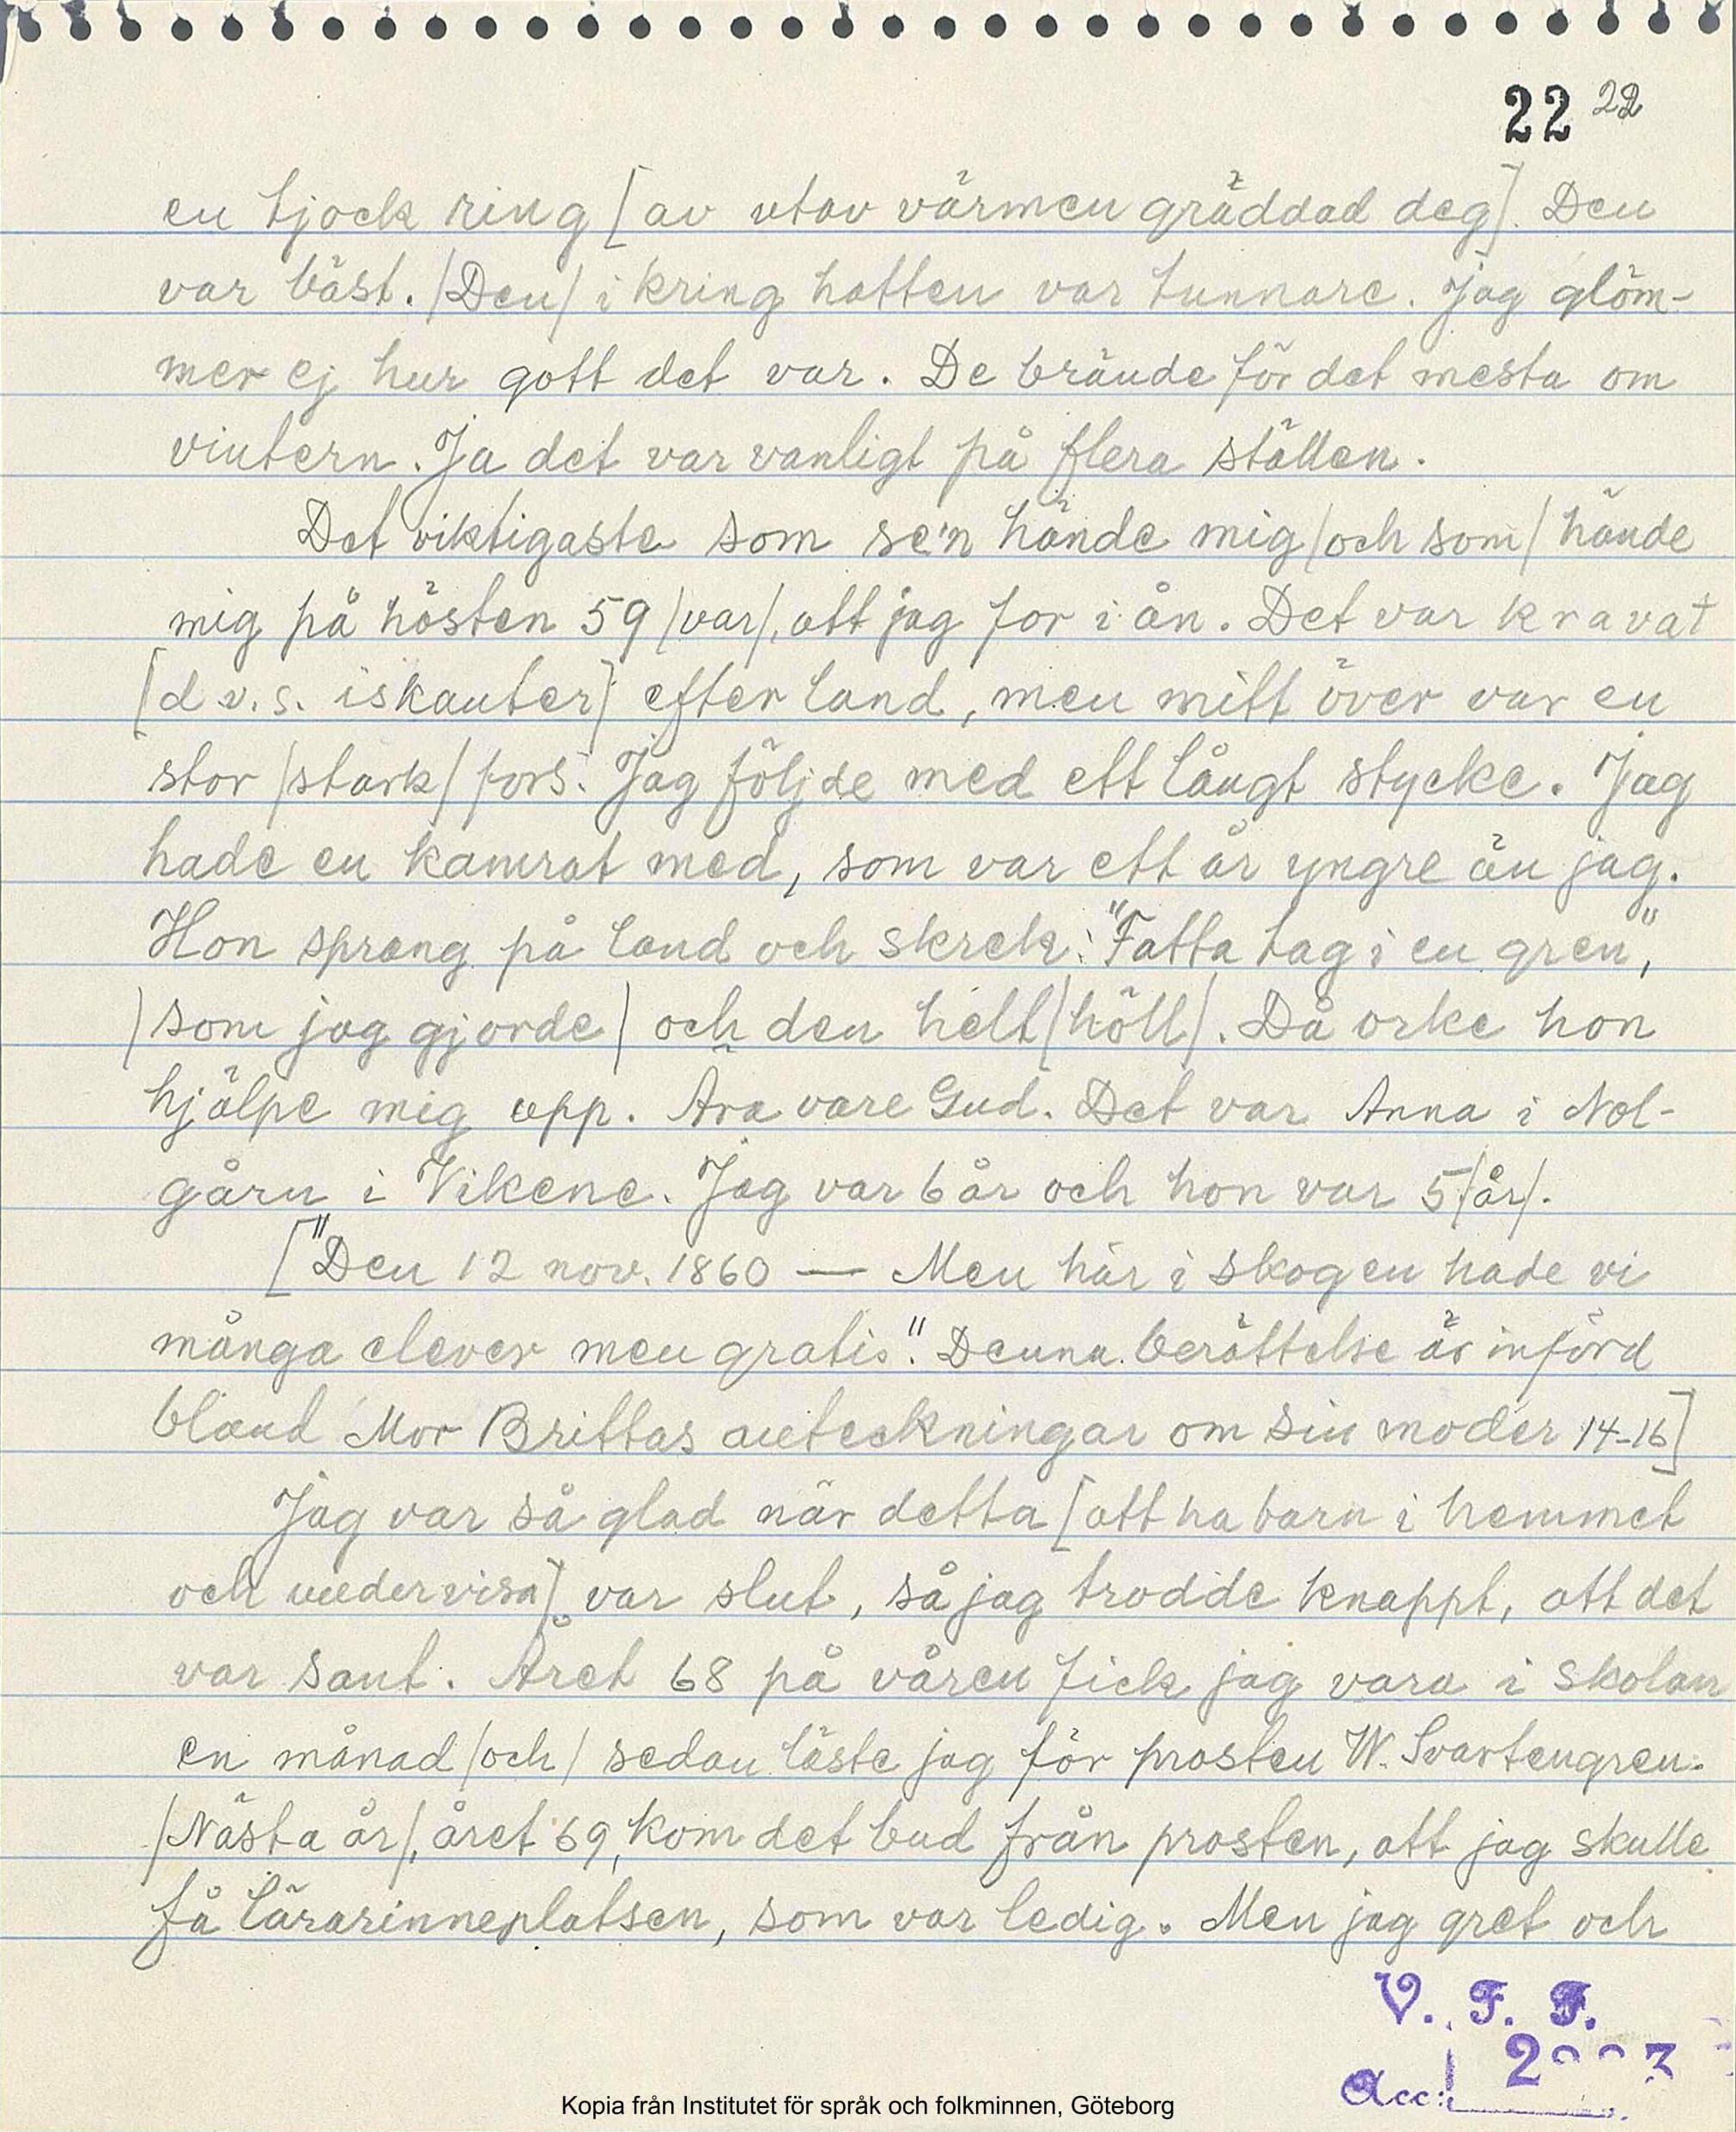 22 22
en tjock ring [av utav värmen gräddad deg]. Den
var bäst. /Den/ i kring hatten var tunnare. Jag glöm-
mer ej hur gott det var. De brände för det mesta om
vintern. Ja det var vanligt på flera ställen.
Det viktigaste som se'n hände mig /och som/ hände
mig på hösten 59 /var/, att jag for i ån. Det var kravat
[d v.s. iskanter] efter land, men mitt över var en
stor /stark/ fors. Jag följde med ett långt stycke. Jag
hade en kamrat med, som var ett år yngre än jag.
Hon sprang på land och skrek: "Fatta tag i en gren",
/som jag gjorde/ och den helt /höll/. Då orke hon
hjälpe mig upp. Ära vare Gud. Det var Anna i Nol-
gårn i Vikene. Jag var 6 år och hon var 5 /år/.
["Den 12 nov. 1860 — Men här i skogen hade vi
många elever men gratis". Denna berättelse är införd
bland Mor Brittas anteckningar om sin moder 14-16]
Jag var så glad när detta [att ha barn i hemmet
och undervisa] var slut, så jag trodde knappt, att det
var sant. Året 68 på våren fick jag vara i skolan
en månad /och/ sedan läste jag för prosten W. Svartengren.
/Nästa år/, året 69, kom det bud från prosten, att jag skulle
få lärarinneplatsen, som var ledig. Men jag gret och
V. F. F.
Acc:
Kopia från Institutet för språk och folkminnen, Göteborg